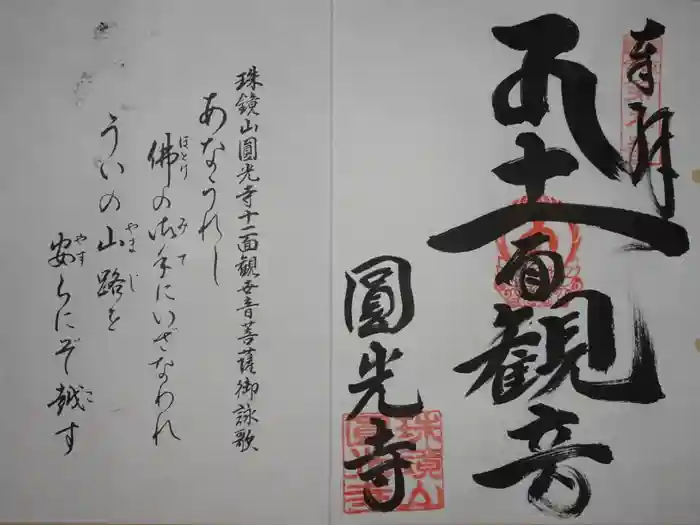 奉拝
十一面観音
圓光寺
珠鏡山
圓光寺
珠鏡山圓光寺十一面観世音菩薩御詠歌
あなうれし
佛の御手にいざなわれ
ほとけ
みて
ういの山路を
やまじ
安らにぞ越す
やす
こ